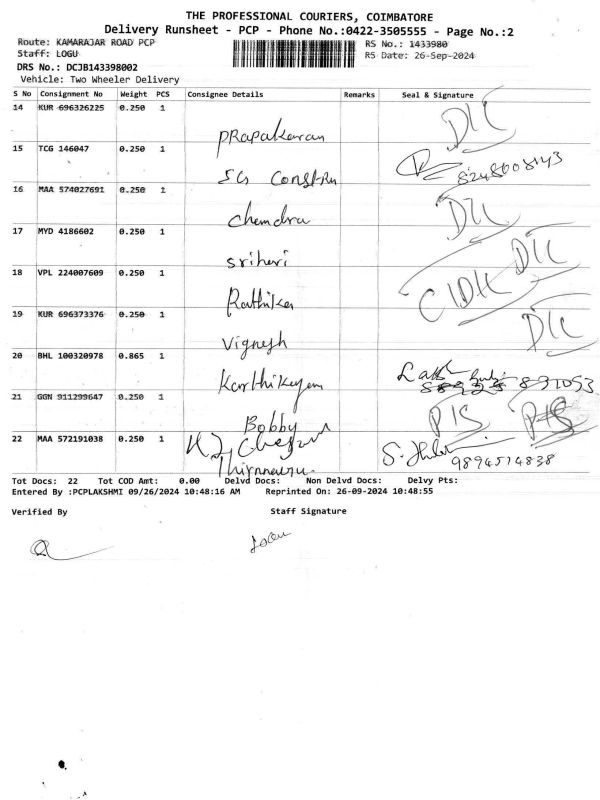 THE PROFESSIONAL COURIERS, COIMBATORE
Delivery Runsheet - PCP - Phone No.:0422-3505555 - Page No.:2
Route: KAMARAJAR ROAD PCP RS No.: 1433980
Staff: LOGU RS Date: 26-Sep-2024
DRS No.: DCJB143398002
Vehicle: Two Wheeler Delivery
S No Consignment No Weight PCS Consignee Details Remarks Seal & Signature
14 KUR 696326225 0.250 1
PRapakaran
15 TCG 146047 0.250 1
SG Constru
16 MAA 574027691 0.250 1
Chandra
17 MYD 4186602 0.250 1
srihari
18 VPL 224007609 0.250 1
Rathika
19 KUR 696373376 0.250 1
Vignesh
20 BHL 100320978 0.865 1
Karthikeyan
21 GGN 911299647 0.250 1
Bobby
22 MAA 572191038 0.250 1
9894574838
Tot Docs: 22 Tot COD Amt: 0.00 Delvd Docs: Non Delvd Docs: Delvy Pts:
Entered By :PCPLAKSHMI 09/26/2024 10:48:16 AM Reprinted On: 26-09-2024 10:48:55
Verified By Staff Signature